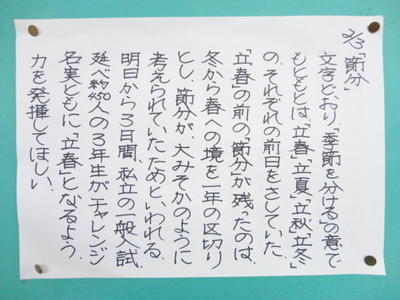 2/3「節分」
文字どおり、「季節を分ける」の意で
もともとは、「立春」「立夏」「立秋」「立冬」
の、それぞれの前日をさしていた。
「立春」の前の「節分」が残ったのは、
冬から春への境を一年の区切り
とし、節分が、大みそかのように
考えられていたためといわれる。
明日から3日間、私立の一般入試。
延べ約450人の3年生がチャレンジ
名実ともに「立春」となるよう、
力を発揮してほしい。